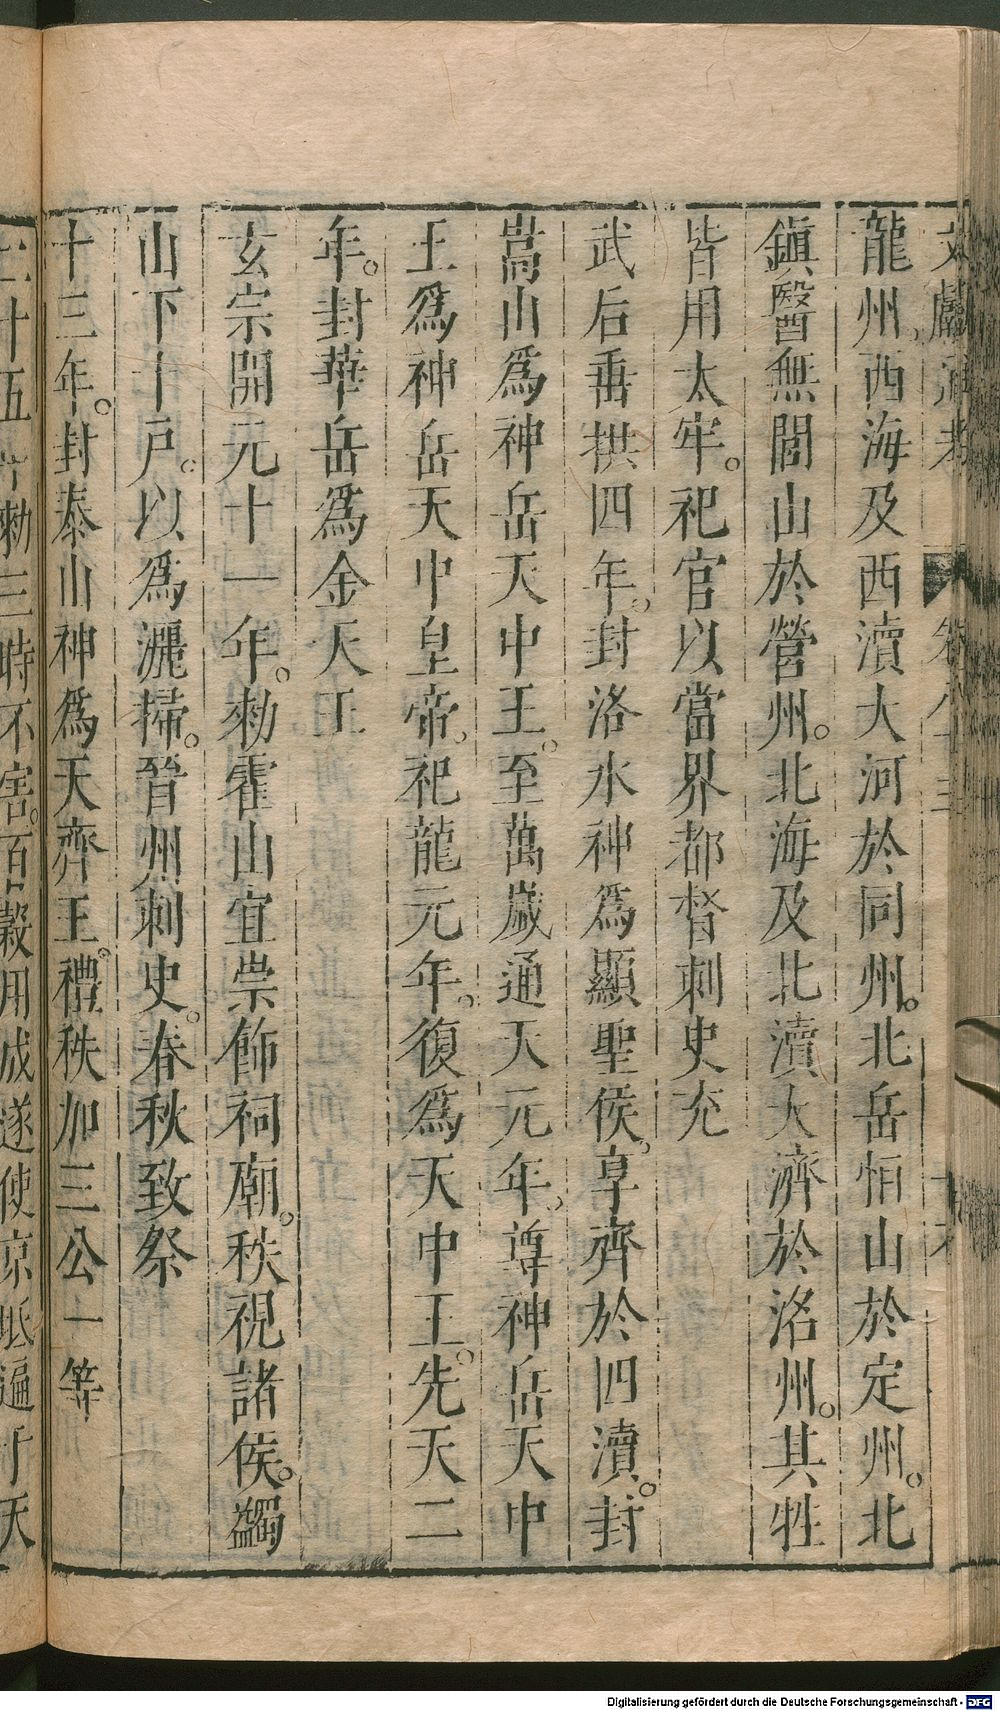 文獻通考 卷八十三
龍州西海及西瀆大河於同州。北岳恒山於定州。北
鎭醫無閭山於營州。北海及北瀆大濟於洺州。其牲
皆用太牢。祀官以當界都督刺史充
武后垂拱四年。封洛水神為顯聖侯。享齊於四瀆。封
嵩山為神岳天中王。至萬歲通天元年。尊神岳天中
王為神岳天中皇帝。祀龍元年。復為天中王。先天二
年。封華岳為金天王
玄宗開元十一年。勑霍山宜崇飾祠廟。秩視諸侯。蠲
山下十戶。以為灑掃。晉州刺史。春秋致祭
十三年。封泰山神為天齊王。禮秩加三公一等
二十五年勑三時不害。百穀用成遂使京坻遍于天
Digitalisierung gefördert durch die Deutsche Forschungsgemeinschaft - DFG